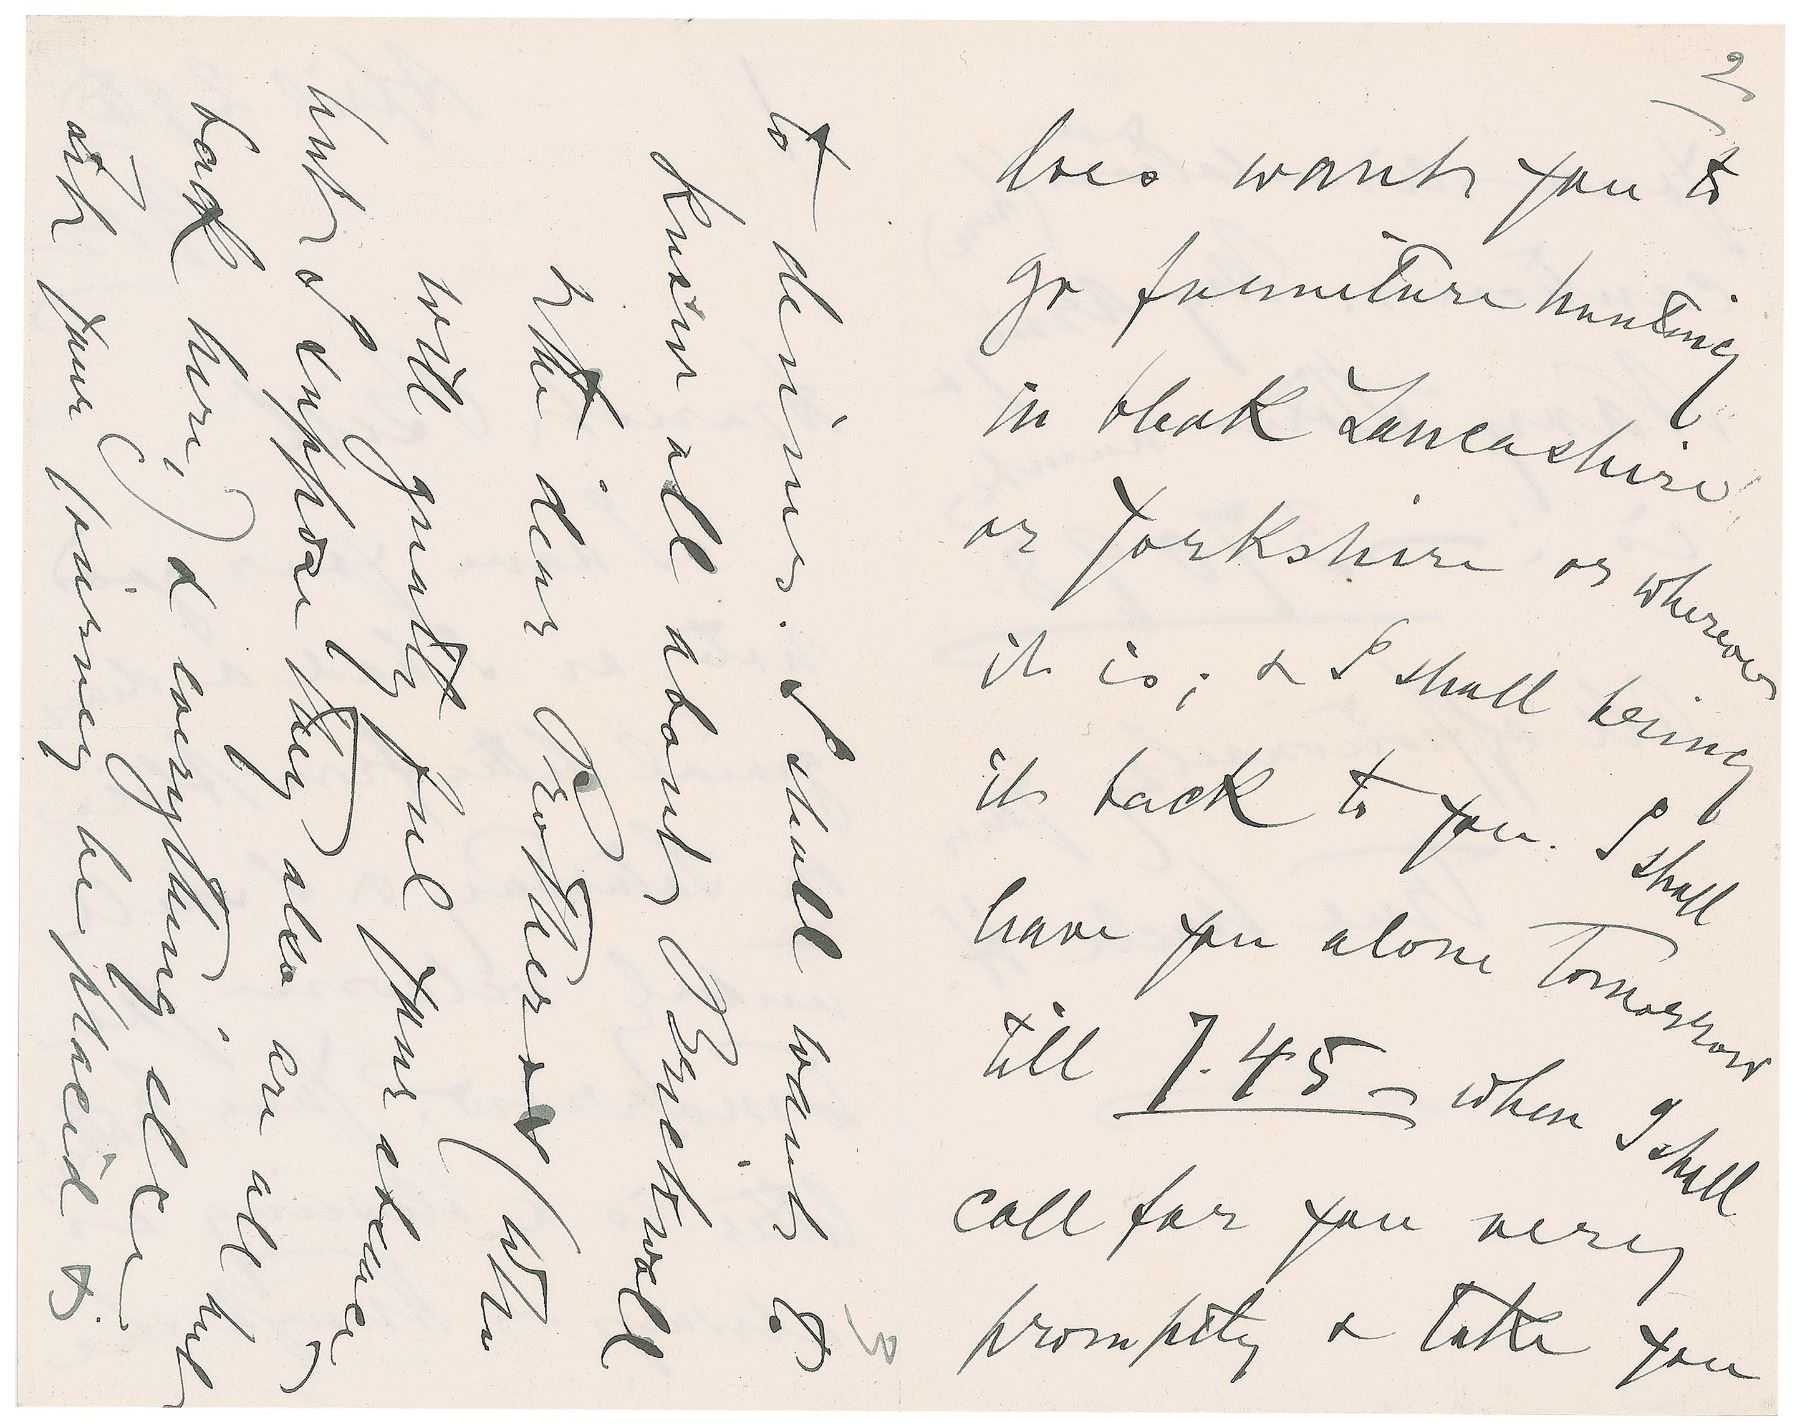 2)
does want you to
go furniture hunting
in bleak Lancashire
or Yorkshire or wherever
it is; & I shall bring
it back to you. I shall
have you alone Tomorrow
till 7.45 – when I shall
call for you very
promptly & take you
3
to dinner. I shall want to
know all about Bricknall
& the dear Protheros (who
will greatly feel your absence,
but I suppose they also are all but
back here,) & everything else.
May your journey be placid &